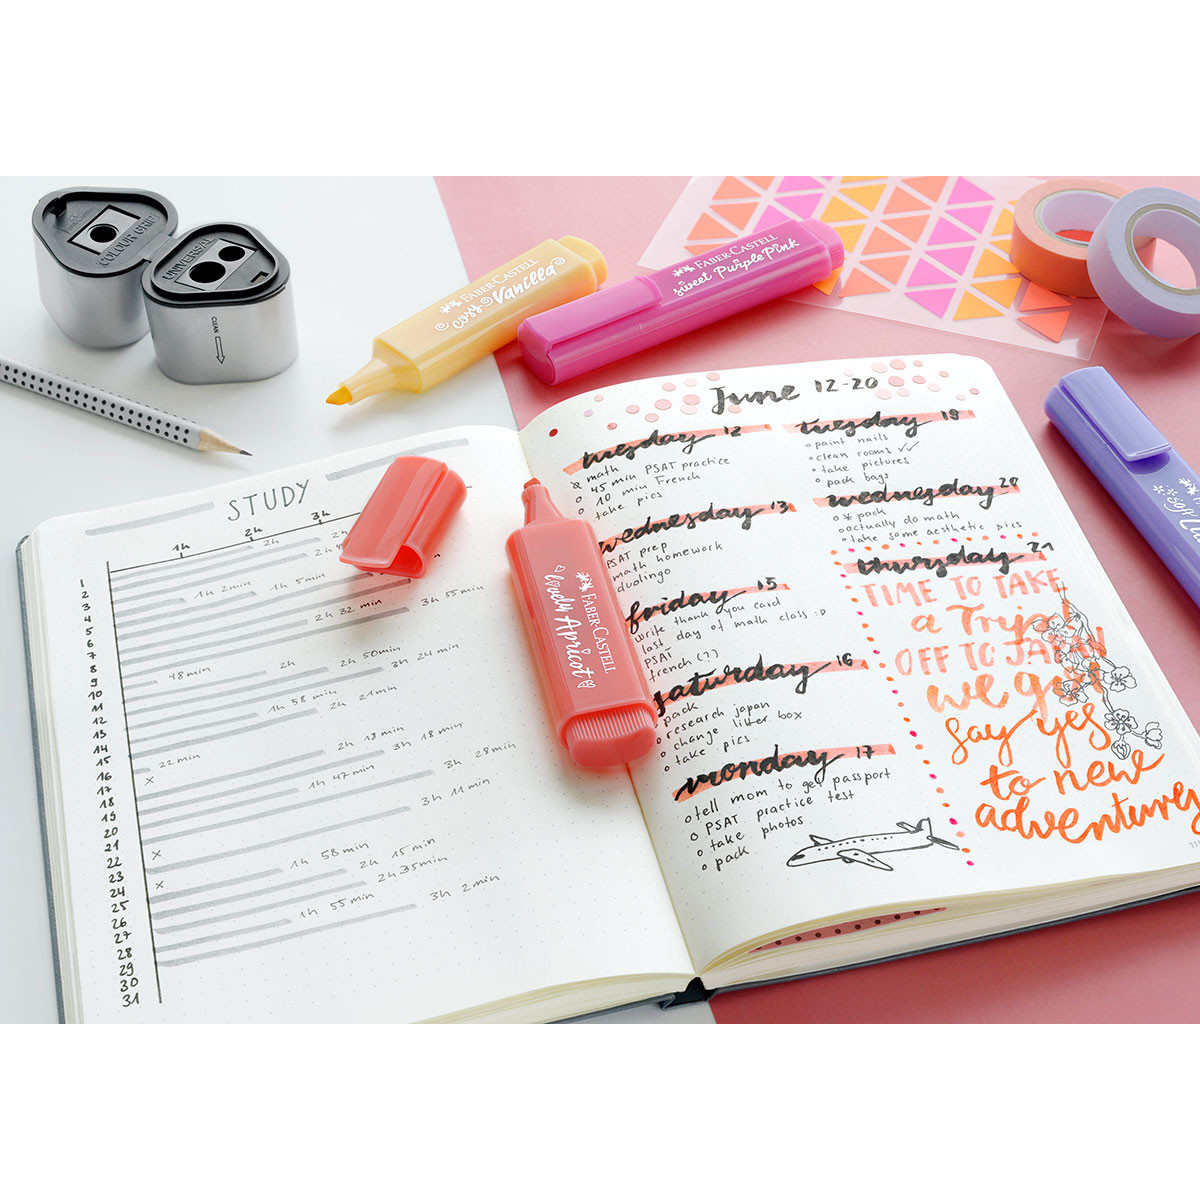 COLOUR GRIP
UNIVERSAL
CLEAN
FABER-CASTELL
cosy Vanilla
FABER-CASTELL
sweet PurplePink
FABER-CASTELL
lovely Apricot
STUDY
1h 2h 3h
1
2
3
4
5
6
7
8
9
10
11
12
13
14
15
16
17
18
19
20
21
22
23
24
25
26
27
28
29
30
31
2h
1h 2min
1h 5min
2h 32 min
3h 55min
48min
2h
2h 50min
3h 24 min
1h 58 min
2h 21min
22 min
2h 18 min
3h 18 min
x
1h 47 min
3h 28min
3h 11min
x
1h 58 min
2h 15min
x
2h 35min
1h 55 min
3h 2min
June 12-20
tuesday 12
math
45 min PSAT practice
10 min French
take pics
wednesday 13
PSAT prep
math homework
duolingo
friday 15
write thank you card
last day of math class :D
PSAT
french (?)
saturday 16
pack
research japan
change litter box
take pics
monday 17
tell mom to get passport
PSAT practice test
take photos
pack
tuesday 19
paint nails
clean rooms ✓✓
take pictures
pack bags
wednesday 20
* pack
actually do math
take some aesthetic pics
thursday 21
TIME TO TAKE
a Trip
OFF TO JAPAN
we gotta
say yes
to new
adventures